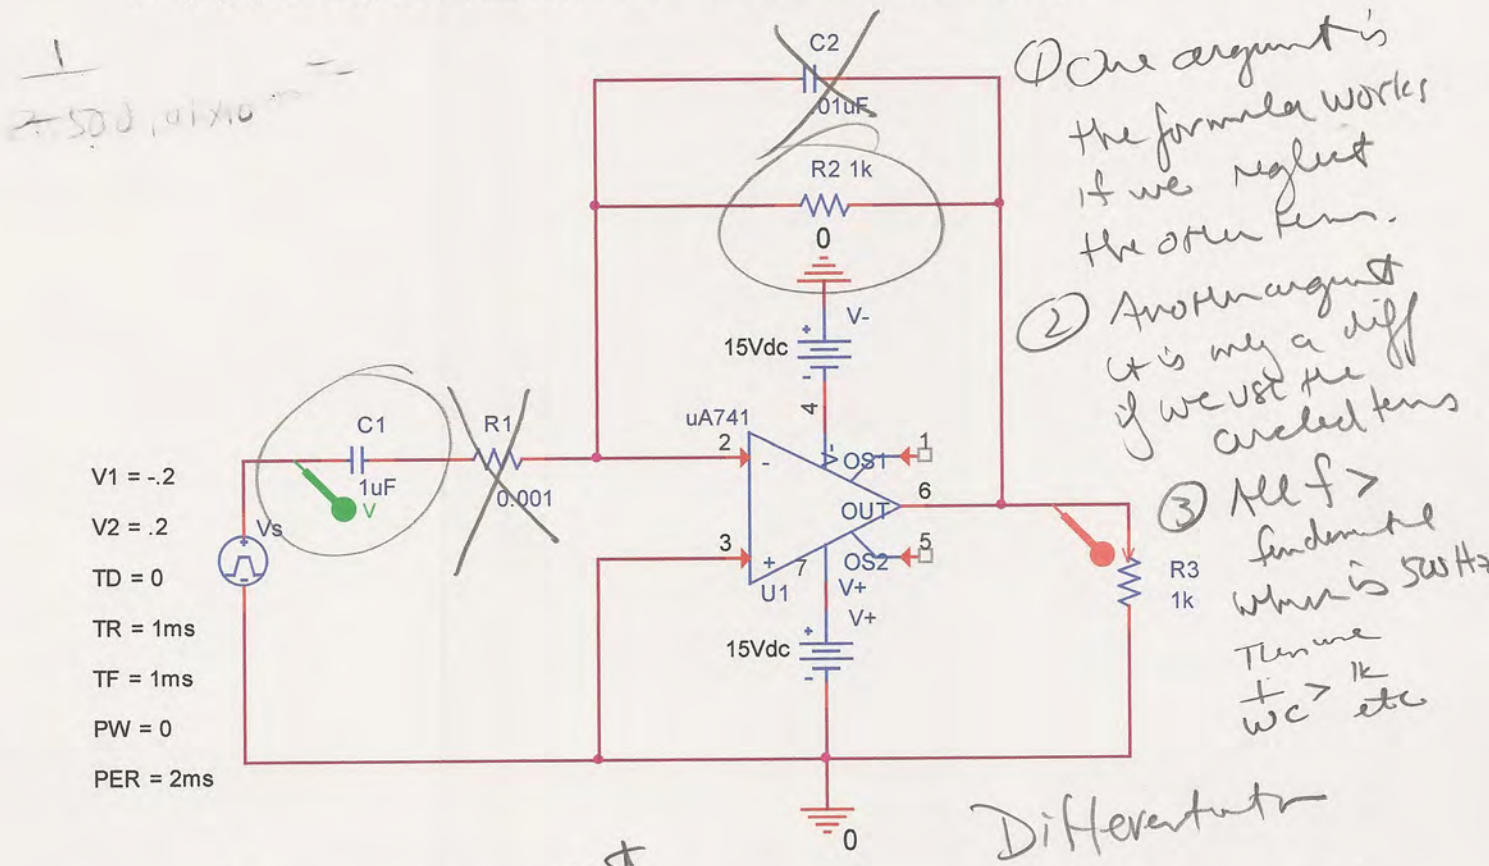 1
C2
.01uF
R2 1k
0
V-
15Vdc
+
-
4
uA741
2
-
V-
OS1
1
6
OUT
3
+
7
OS2
5
U1
V+
V+
15Vdc
+
-
0
C1
1uF
V
R1
0.001
Vs
+
-
V1 = -.2
V2 = .2
TD = 0
TR = 1ms
TF = 1ms
PW = 0
PER = 2ms
R3
1k
① One argument is
the formula works
if we neglect
the other terms.
② Another argument
it is only a diff
if we use the
circled terms
③ All f >
fundamental
which is 500 Hz
1
wc > 1k
etc